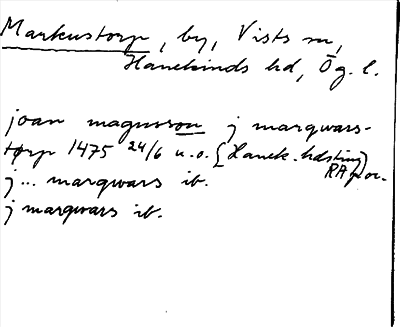 Markustorp, by, Vists sn,
Hanekinds hd, Ög. l.
joan magnusson j marqwars-
torp 1475 24/6 u.o. (Hanek. hdsting)
RAp or.
j... marqwars ib.
j marqwars ib.